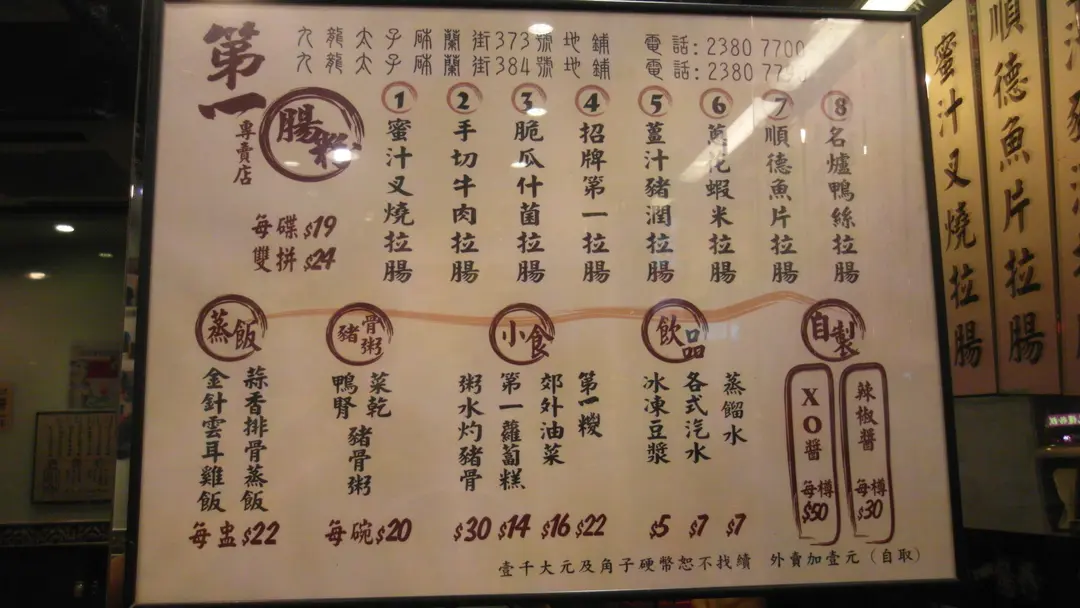 第一
腸粉
專賣店
九龍太子砵蘭街373號地鋪 電話: 2380 7700
九龍太子砵蘭街384號地鋪 電話: 2380 77
每碟 $19
雙拼 $24
1 蜜汁叉燒拉腸
2 手切牛肉拉腸
3 脆瓜什菌拉腸
4 招牌第一拉腸
5 薑汁豬潤拉腸
6 蔥花蝦米拉腸
7 順德魚片拉腸
8 名爐鴨絲拉腸
蒸飯
蒜香排骨蒸飯
金針雲耳雞飯
每盅 $22
豬骨粥
菜乾
鴨腎
豬骨粥
每碗 $20
小食
粥水灼豬骨 $30
第一蘿蔔糕 $14
郊外油菜 $16
第一糉 $22
飲品
冰凍豆漿 $5
各式汽水 $7
蒸餾水 $7
自製
XO醬 每樽 $50
辣椒醬 每樽 $30
壹千大元及角子硬幣恕不找續 外賣加壹元（自取）
蜜汁叉燒拉腸
順德魚片拉腸